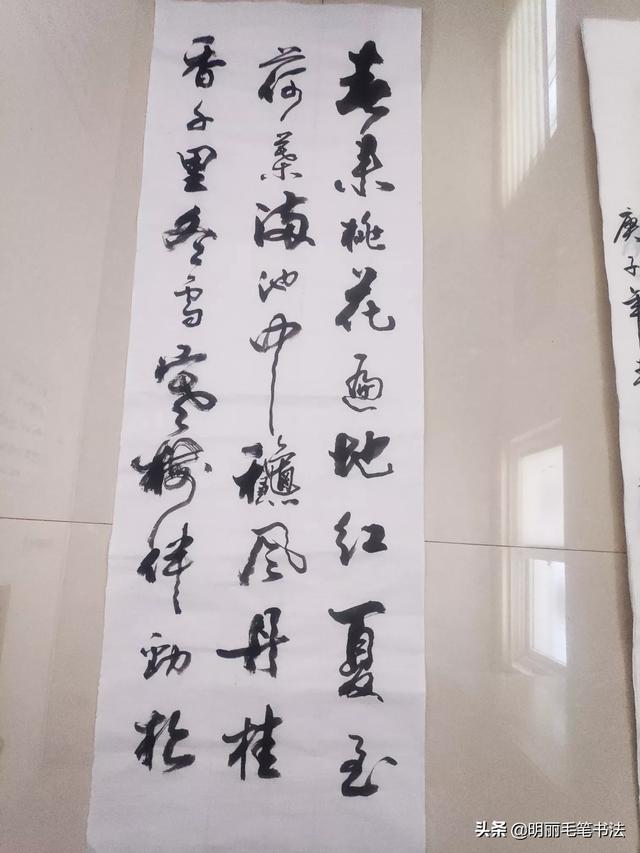 春来桃花遍地红夏至
荷葉满池中龝风丹桂
香千里冬雪寒梅伴劲松
庚子年
头条 @明丽毛笔书法